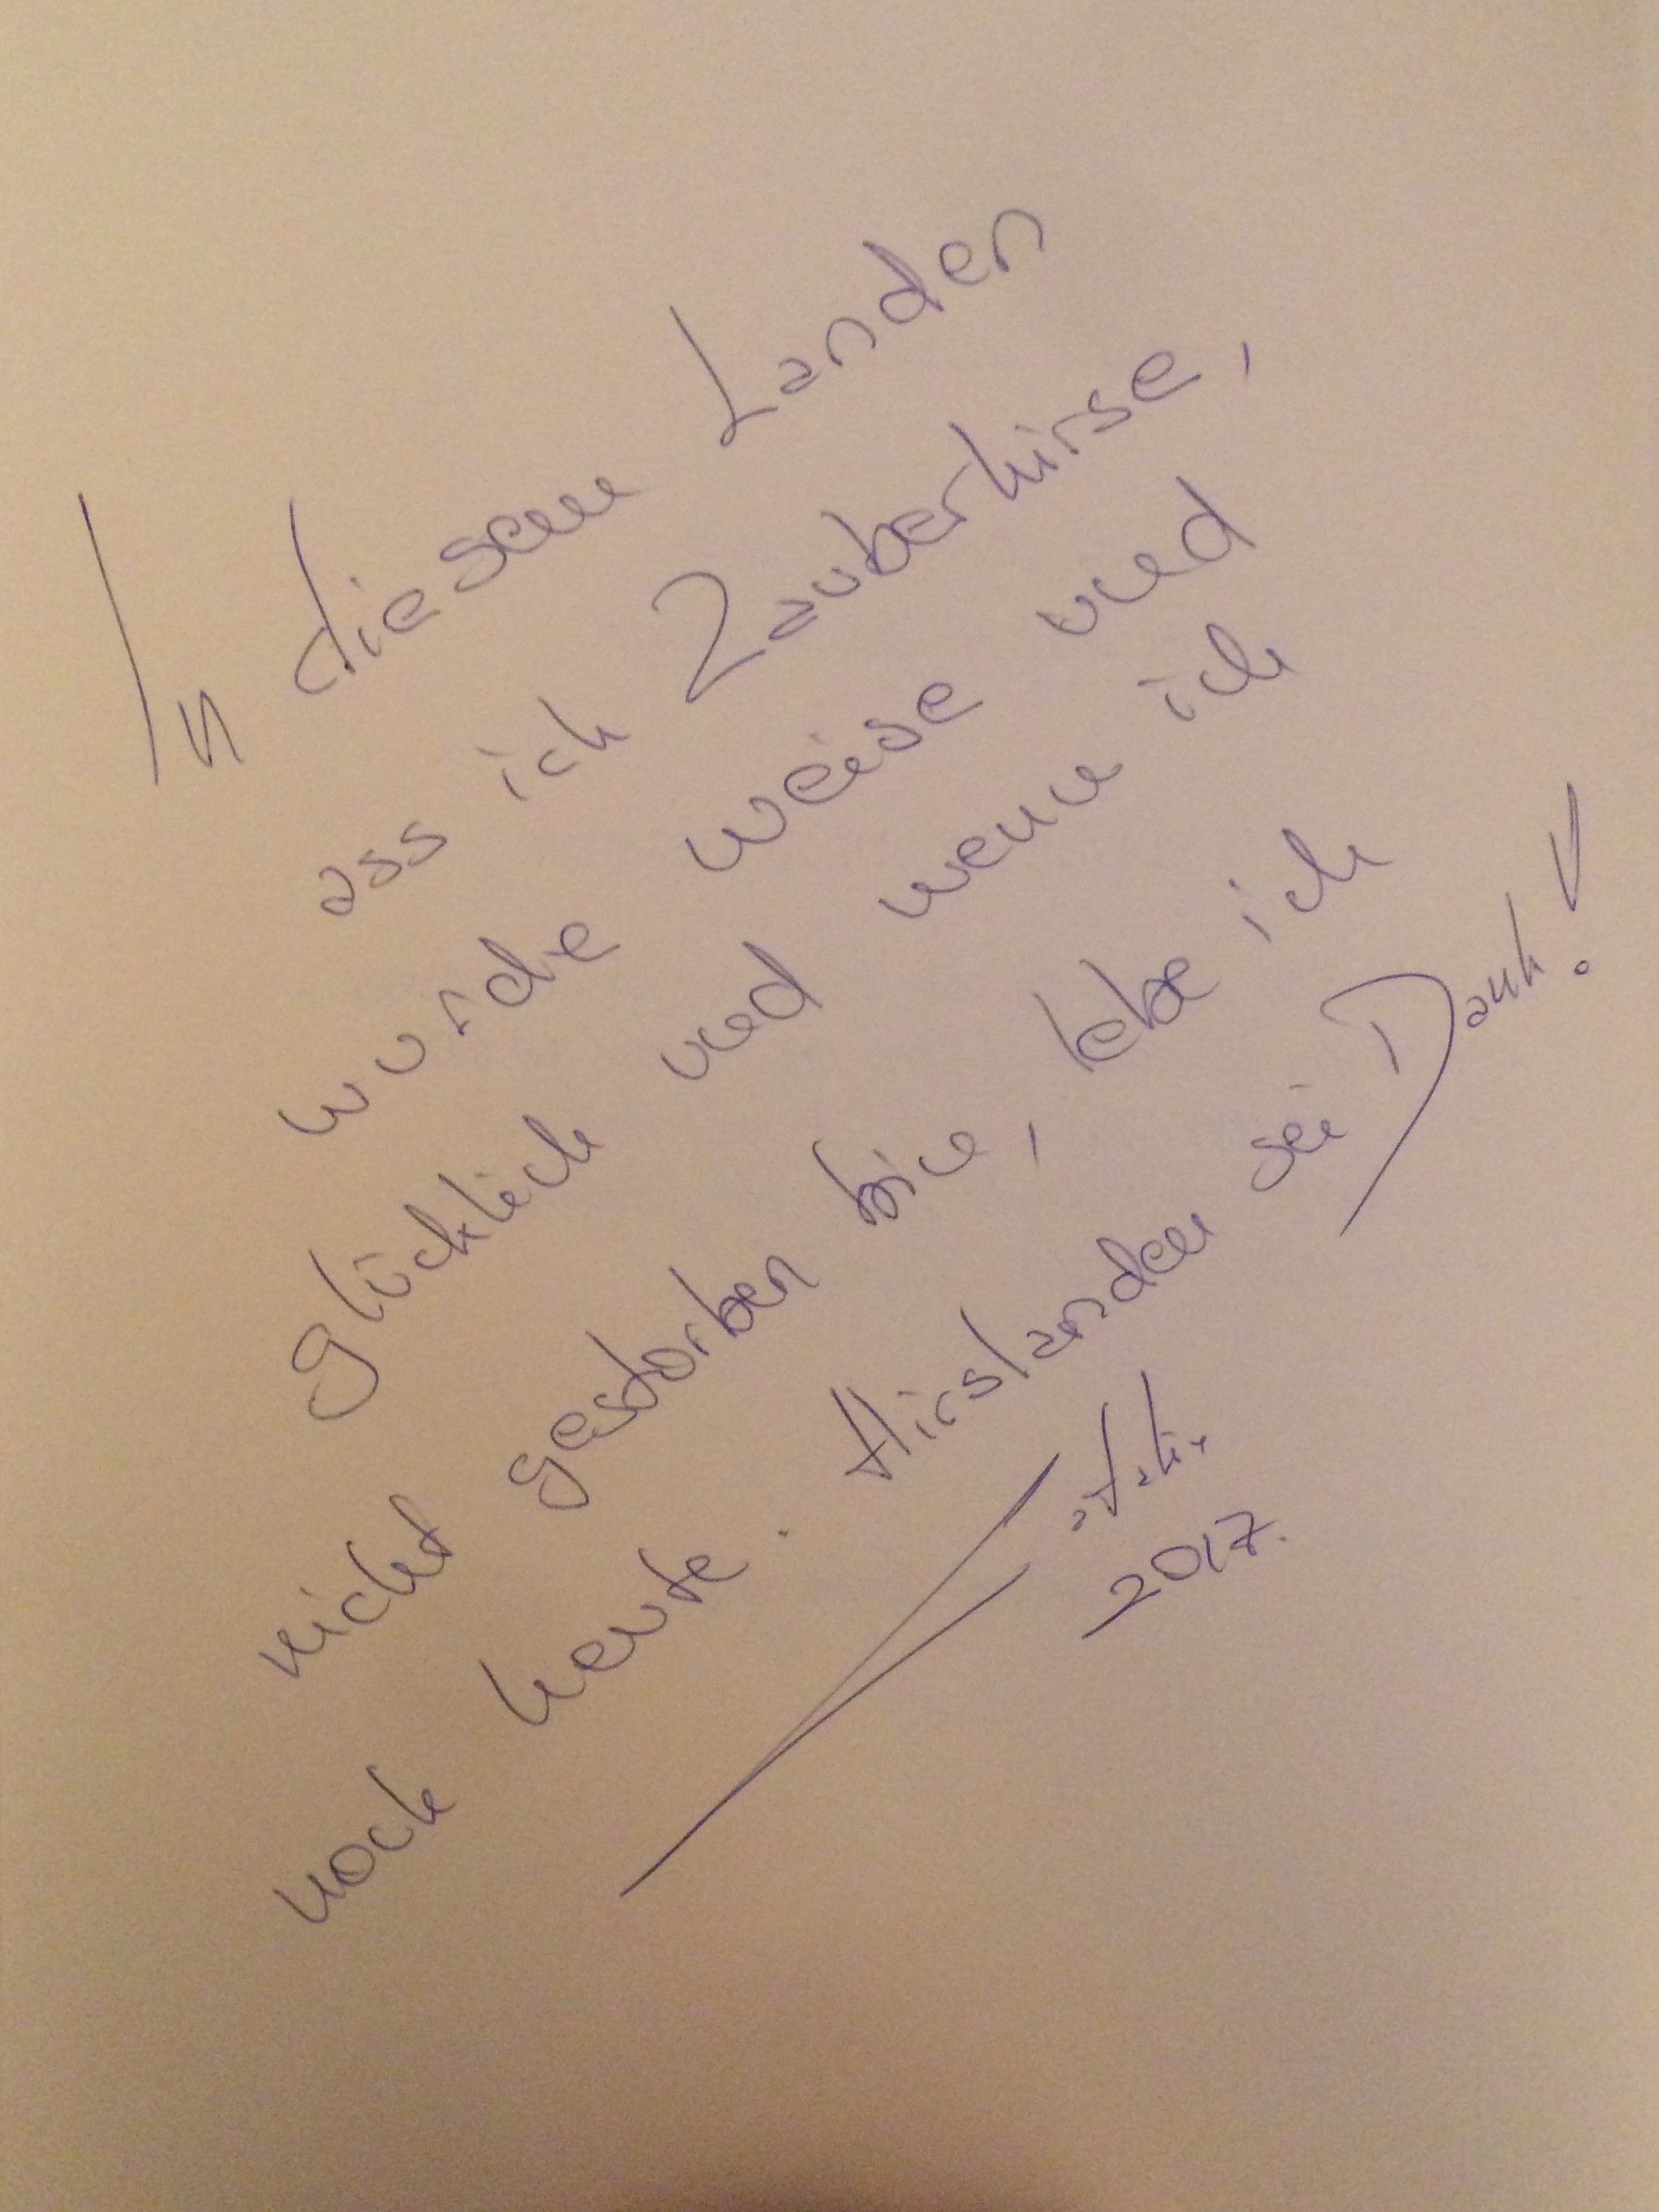 In diesem Landen
ass ich Zauberhirse,
wurde weise und
glücklich und wenn ich
nicht gestorben bin, lebe ich
noch heute. Hirslanden sei Dank!
2017.